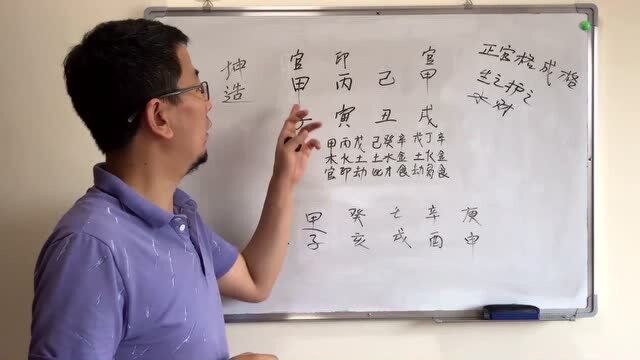 坤
造
官 印 官
甲 丙 己 甲
子 寅 丑 戌
甲丙戊 己癸辛 戊丁辛
木火土 土水金 土火金
官印劫 比才食 劫食
甲 癸 辛 庚
子 亥 戌 酉 申
正官格成格
生之护之
水财